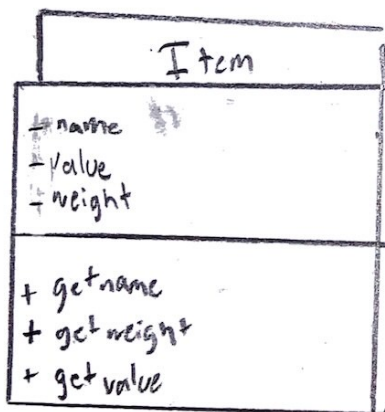 Item
- name
- value
- weight
+ getname
+ getweight
+ getvalue